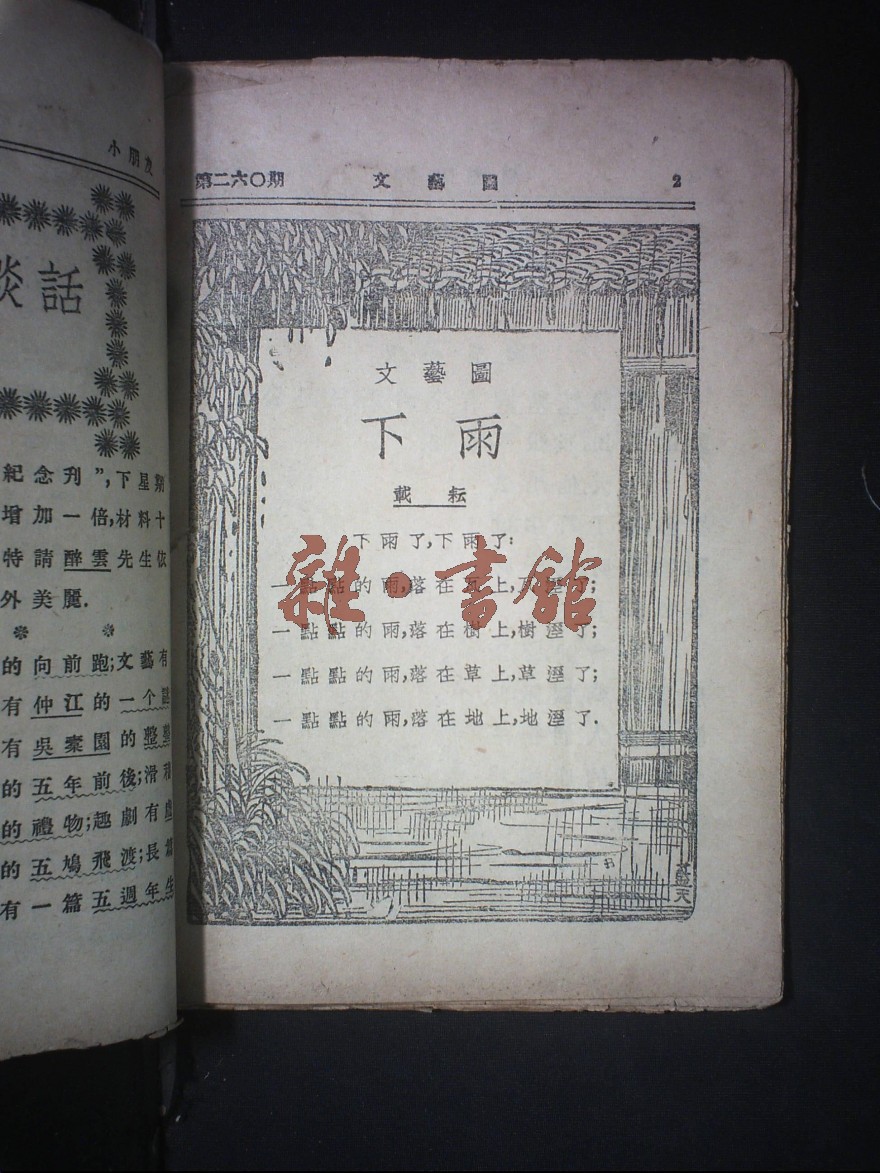 小朋友
談話
紀念刋”,下星期
增加一倍,材料十
特請醉雲先生依
外美麗.
的向前跑;文藝有
有仲江的一个
有吳橐園的整
的五年前後;滑
的禮物;趣劇有
的五鳩飛渡;長
有一篇五週年生
第二六〇期 文藝圖 2
文藝圖
下雨
載耘
下雨了,下雨了:
一點點的雨,落在瓦上,瓦溼了;
一點點的雨,落在樹上,樹溼了;
一點點的雨,落在草上,草溼了;
一點點的雨,落在地上,地溼了.
藍天
雜·書館